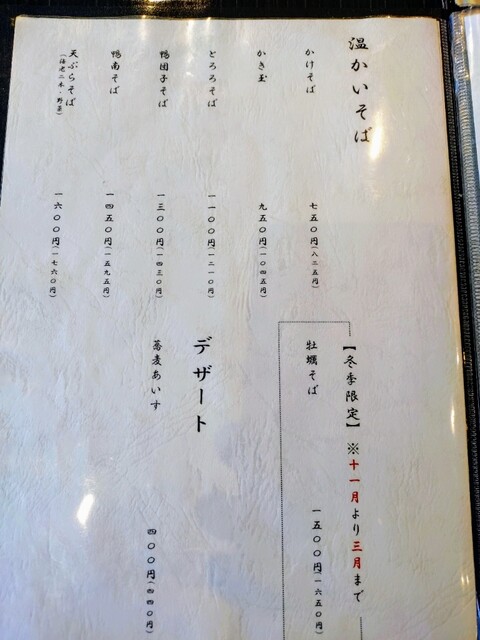 温かいそば
かけそば 七五〇円(八二五円)
かき玉 九五〇円(一〇四五円)
とろろそば 一一〇〇円(一二一〇円)
鴨団子そば 一三〇〇円(一四三〇円)
鴨南そば 一四五〇円(一五九五円)
天ぷらそば 一六〇〇円(一七六〇円)
(海老二本・野菜)
【冬季限定】※十一月より三月まで
牡蠣そば 一五〇〇円(一六五〇円)
デザート
蕎麦あいす 四〇〇円(四四〇円)